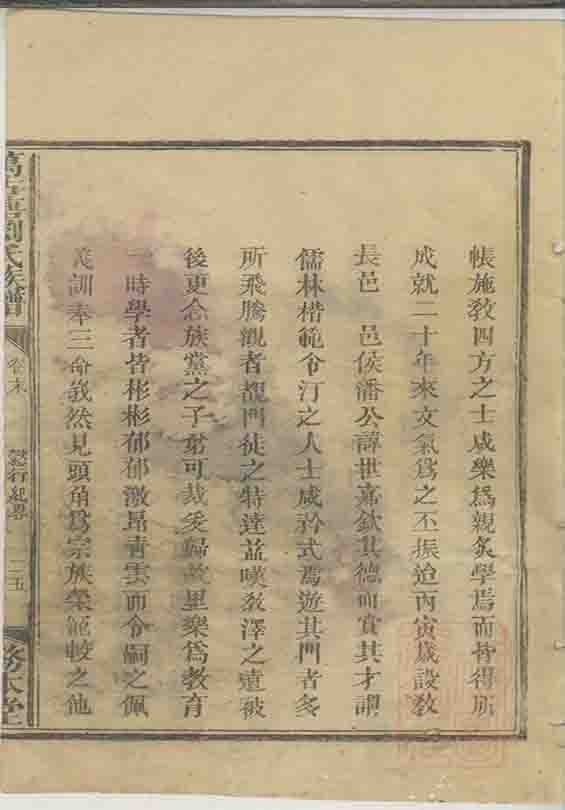 帳施教四方之士咸樂爲親炙學焉而皆得所
成就二十年來文氣爲之丕振迨丙寅歲設教
長邑　邑侯潘公諱世嘉欽其德而賞其才謂
儒林楷範令汀之人士咸矜式焉遊其門者多
所飛騰觀者覩門徒之特達益嘆教澤之遠被
後更念族黨之子弟可裁爰歸故里樂爲教育
一時學者皆彬彬郁郁激昂青雲而令嗣之佩
義訓奉三命峩然見頭角爲宗族榮範較之他
劉氏族譜
卷末
懿行紀畧
二五